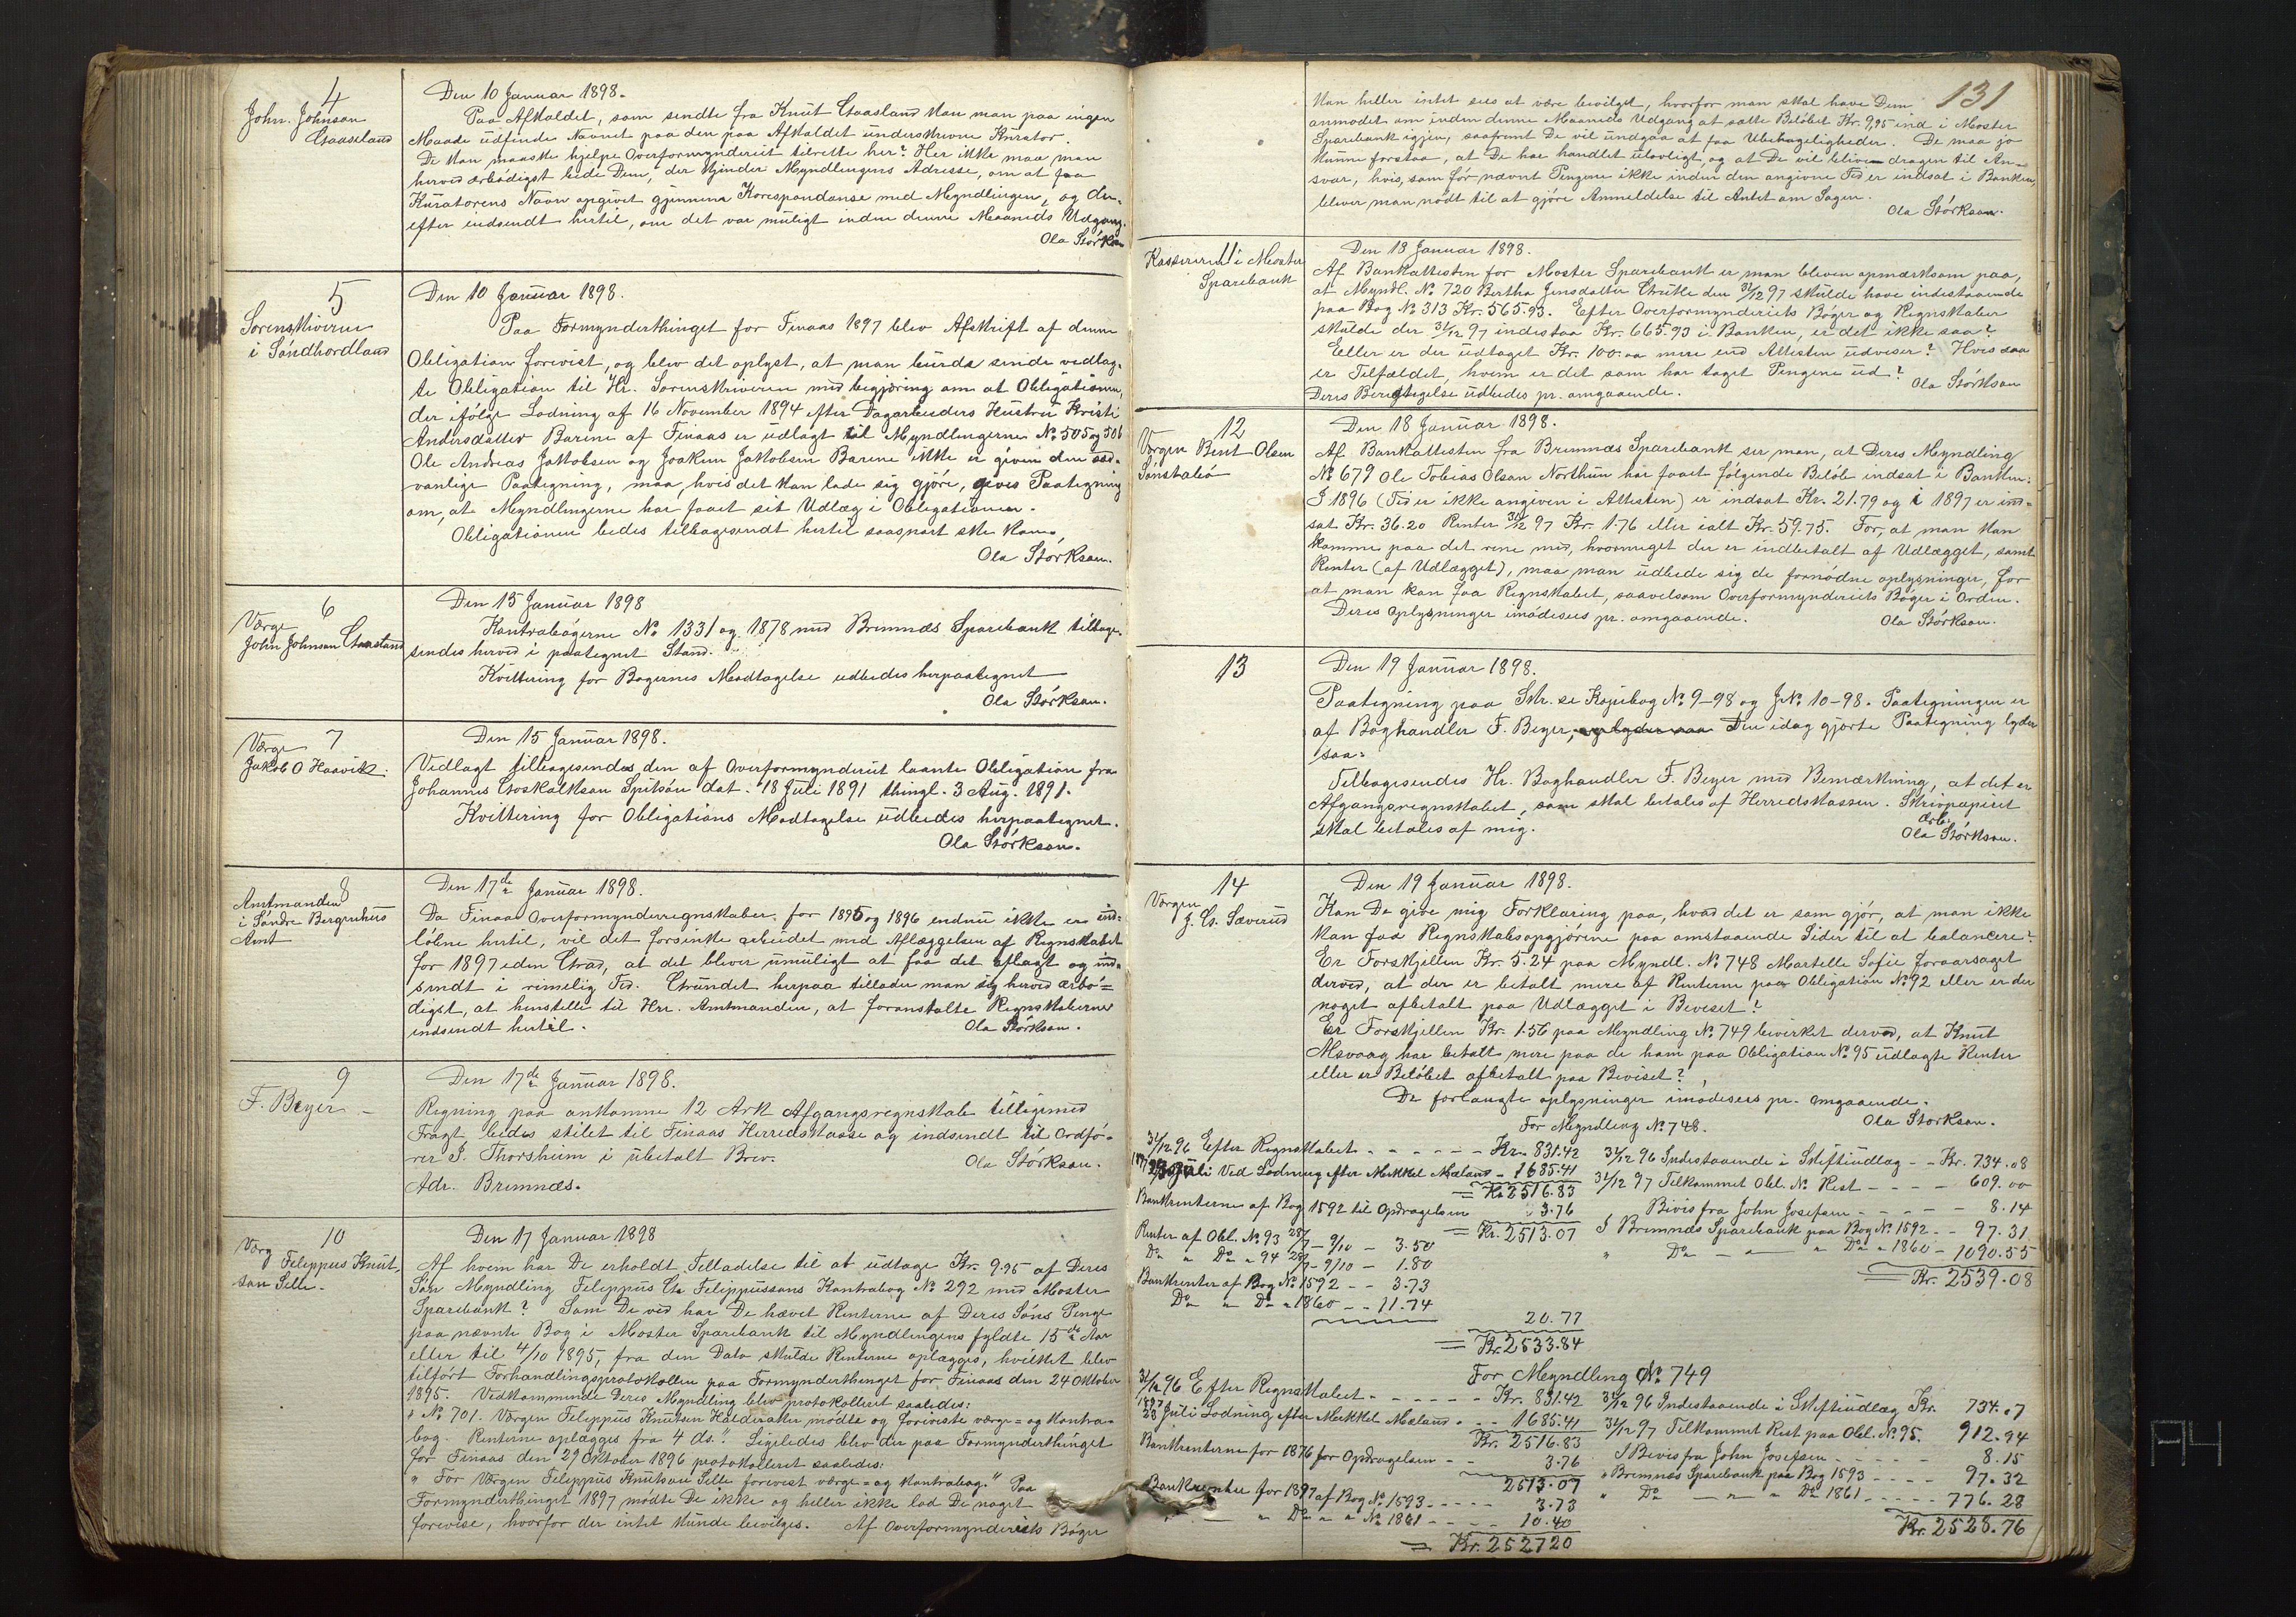 4
John. Johnson
Gaaseland
Den 10 Januar 1898.
Paa Afkaldet, som sendte fra Knut Gaasland kan man paa ingen
Maade udfinde Navnet paa den paa Afkaldet underskrevne Kurator.
De kan maaske hjelpe Overformynderiet tilrette her? Her ikke maa man
herved ærbödigst bede Dem, der kjender Myndlingens Adresse, om at faa
Kuratorens Navn opgivet gjennem Korespondanse med Myndlingen, og der-
efter indsendt hertil, om det var muligt inden denne Maaneds Udgang.
Ola Störkson
5
Sorenskriveren
i Söndhordland
Den 10 Januar 1898.
Paa Formynderthinget for Finaas 1897 blev Afskrift af denne
Obligation forevist, og blev det oplyst, at man burde sende vedlag-
te Obligation til Hr. Sorenskriveren med begjæring om at Obligationen,
der ifölge Lodning af 16 November 1894 efter Dagarbeiders Hustru Kristi
Andersdatter Barene af Finaas er udlagt til Myndlingerne No 505 og 506
Ole Andreas Jakkobsen og Joakim Jakkobsen Barene ikke er given den sæd-
vanlige Paategning, maa, hvis det kan lade sig gjöre, gives Paategning
om, at Myndlingerne har faaet sit Udlæg i Obligationen.
Obligationen bedes tilbagesendt hertil saasnart ske kan.
Ola Störkson.
6
Værge
John Johnson Gaasland
Den 15 Januar 1898
Kontrabögerne No 1331 og 1878 med Bremnæs Sparebank tilbage-
sendes herved i paategnet Stand.
Kvittering for Bögernes Modtagelse udbedes herpaategnet
Ola Störkson.
7
Værge
Jakob O Haavik.
Den 15 Januar 1898.
Vedlagt tilbagesendes den af Overformynderiet laante Obligation fra
Johannes Goskalkson Spitsöu dat. 18 Juli 1891 thingl. 3 Aug. 1891.
Kvittering for Obligations Modtagelse udbedes herpaategnet.
Ola Störkson.
8
Amtmanden
i Söndre Bergenhus
Amt
Den 17de Januar 1898.
Da Finaas Overformynderregnskaber for 1895 og 1896 endnu ikke er ind-
löbne hertil, vil det forsinke arbeidet med Aflæggelsen af Regnskabet
for 1897 i den Grad, at det bliver umuligt at faa det aflagt og ind-
sendt i rimelig Tid. Grundet herpaa tillader man sig herved ærbö=
digst, at henstille til Hrr. Amtmanden, at foranstalte Regnskaberne
indsendt hertil.
Ola Störkson.
9
F. Beyer -
Den 17de Januar 1898.
Regning paa ankomne 12 Ark Afgangsregnskab tilligemed
Fragt bedes stilet til Finaas Herredskasse og indsendt til Ordfö-
rer I. Thorsheim i ubetalt Brev.
Ola Störkson.
Adr. Bremnæs.
10
Værg Filippus Knut,
son Selle.
Den 17 Januar 1898
Af hvem har De erholdt Tilladelse til at udtage Kr. 9.95 af Deres
Sön Myndling Filippus Filippussons Kontrabog No 292 med Moster
Sparebank? Som De ved har De hævet Renterne af Deres Söns Penge
paa nævnte Bog i Moster Sparebank til Myndlingens fyldte 15de Aar
eller til 4/10 1895, fra den Dato skulde Renterne oplægges, hvilket blev
tilfört Forhandlingsprotokollen paa Formynderthinget for Finaas den 24 Oktober
1895. Vedkommende Deres Myndling blev protokolleret saaledes:
" No 701. Værgen Filippus Knutsen Halderaker mödte og foreviste værge= og kontra-
bog. Renterne oplægges fra 4 ds." Ligeledes blev der paa Formynderthinget
for Finaas den 29 Oktober 1896 protokolleret saaledes:
" For Værgen Filippus Knutson Selle forevist værge= og kontrabog." Paa
Formynderthinget 1897 mödte De ikke og heller ikke lod De noget
forevise, hvorfor der intet kunde bevilges. Af Overformynderiets Böger
131
kan heller intet sees at være bevilget, hvorfor man skal have Dem
anmodet om inden denne Maaneds Udgang at sætte Belöbet Kr. 9,95 ind i Moster
Sparebank igjen, saafremt De vil undgaa at faa Ubehageligheder. De maa jo
kunne forstaa, at De har handlet ulovligt, og at De vil blive dragen til An-
svar, hvis, som för nævnt Pengene ikke inden den angivne Tid er indsat i Banken,
bliver man nödt til at gjöre Anmeldelse til Amtet om Sagen.
Ola Störkson.
11
Kassereren i Moster
Sparebank
Den 18 Januar 1898.
Af Bankattesten for Moster Sparebank er man bleven opmærksom paa,
at Myndl. No 720 Bertha Jensdatter Grutle den 31/12 97 skulde have indestaaende
paa Bog No 313 Kr. 565.93. Efter Overformynderiets Böger og Regnskaber
skulde der 31/12 97 indestaa Kr. 665.93 i Banken, er det ikke saa?
Eller er der udtaget Kr. 100.00 mere end Attesten udviser? Hvis saa
er Tilfældet, hvem er det som har taget Pengene ud?
Deres Beretgtelse udbedes pr. omgaaende.
Ola Störkson
12
Værgen Bent Olsen
Sönstabö
Den 18 Januar 1898.
Af Bankattesten fra Bremnæs Sparebank ser man, at Deres Myndling
No 679 Ole Tobias Olson Northun har faaet fölgende Belöb indsat i Banken:
I 1896 (Tid er ikke angiven i Attesten) er indsat Kr. 21.79 og i 1897 er ind-
sat Kr. 36.20 Renter 31/12 97 Kr. 1.76 eller ialt Kr. 59.75. For, at man kan
komme paa det rene med, hvormeget der er indbetalt af Udlægget, samt
Renter (af Udlægget), maa man udbede sig de fornödne oplysninger, for
at man kan faa Regnskabet, saavelsom Overformynderiets Böger i Orden.
Deres oplysninger imödesees pr. omgaaende.
Ola Störkson.
13
Den 19 Januar 1898.
Paategning paa Skr. se Kopibog No 9-98 og J.No 10-98. Paategningen er
af Boghandler F. Beyer, Den idag gjorte Paategning lyder
saa:
Tilbagesendes Hr. Boghandler F. Beyer med Bemærkning, at det er
Afgangsregnskabet, som skal betales af Herredskassen. Skrivpapiret
skal betales af mig.
ærb.
Ola Störkson.
14
Værgen
J. G. Sæverud
Den 19 Januar 1898.
Kan De give mig Forklaring paa, hvad det er som gjör, at man ikke
kan faa Regnskabsopgjörene paa omstaaende Sider til at balancere?
Er Forskjellen Kr. 5.24 paa Myndl. No 748 Martelle Sofie foraarsaget
derved, at der er betalt mere af Renterne paa Obligation No 92 eller er der
noget afbetalt paa Udlægget i Beviset?
Er Forskjellen Kr. 1.56 paa Myndling No 749 bevirket derved, at Knut
Alsvaag har betalt mere paa de ham paa Obligation No 95 udlagte Renter
eller er Belöbet afbetalt paa Beviset?
De forlangte oplysninger imödesees pr. omgaaende.
Ola Störkson.
For Myndling No 748.
31/12 96 Efter Regnskabet - - - - - Kr. 831.42
Juli Ved Lodning efter Mikkel Mæland - 1685.41
= Kr 2516.83
Bankrenterne af Bog 1592 til Opdragelsen 3.76
= Kr. 2513.07
Renter af Obl. No 93 28/7 - 9/10 - 3.50
Do " Do " 94 28/7 - 9/10 - 1.80
Bankrenter af Bog No 1592 - - 3.73
Do " Do " 1860 - - 11.74
20.77
= Kr. 2533.84
31/12 96 Indestaaende i Skifteudlæg - - Kr. 734.08
31/12 97 Tilkommet Obl. No Rest - - - - 609.00
Bevis fra John Josefsen - - - - - 8.14
I Bremnæs Sparebank paa Bog No 1592 - - 97.31
" Do - " - " Do " 1860 - 1090.55
= Kr. 2539.08
For Myndling No 749
31/12 96 Efter Regnskabet - - - - - - Kr. 831.42
1897
28 Juli Lodning efter Mikkel Mæland - - - 1685.41
Kr. 2516.83
Bankrenterne for 1876 for Opdragelsen - - 3.76
2513.07
Bankrenter for 1897 af Bog No 1593 - - - - - 3.73
" - " Do " " No 1861 - - - - 10.40
= Kr. 252720
31/12 96 Indestaaende i Skifteudlæg Kr. 734.07
31/12 97 Tilkommet Rest paa Obl. No 95. 912.94
I Bevis fra John Josefsen - - - - - 8.15
" Bremnæs Sparebank paa Bog 1593 - - - - 97.32
" Do - " - " Do 1861 - - - - - 776.28
Kr. 2528.76
A4